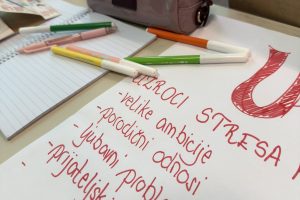 U
UZROCI STRESA
-velike ambicije
-porodični odnosi
-ljubavni problemi
-prijateljski